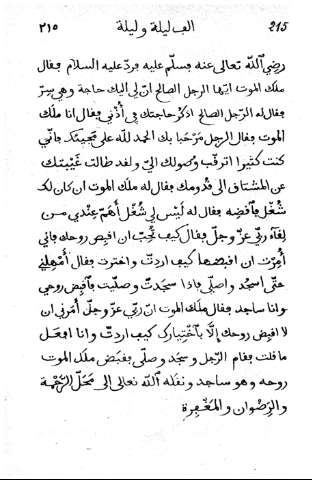 ٢١٥ الف ليلة وليلة 215
رضي الله تعالى عنه فسلّم عليه فردّ عليه السلام فقال
ملك الموت ايّها الرجل الصالح ان لي اليك حاجة وهي سرّ
فقال له الرّجل الصالح اذكر حاجتك في أُذُني فقال انا ملك
الموت فقال الرجل مَرْحَبا بك الحمد لله على مجيئك فانّي
كنت كثيرا اترقّب وُصولك اليّ ولقد طالت غَيْبتك
عن المشتاق الى قدومك فقال له ملك الموت ان كان لك
شُغْل فاقضِه فقال له ليْس لي شُغْل أهمّ عندي من
لِقآء ربّي عزّ وجلّ فقال كيف تُحِبّ ان اقبِض روحك فاني
أُمِرْت ان اقبضها كيف اردتّ واخترت فقال أمْهِلْني
حتّى اسجُد واصلّي فاذا سجدتّ وصلّيت فاقبِض روحي
وانا ساجد فقال ملك الموت انّ ربّي عزّ وجلّ أمرني ان
لا اقبِض روحك إلّا باختيارك كيف اردتّ وانا افعَل
ما قلت فقام الرّجل وسجد وصلّى فقبَض ملك الموت
روحه وهو ساجد ونقله الله تعالى الى محَلّ الرّحْمة
والرِّضْوان والمَغْفِرة